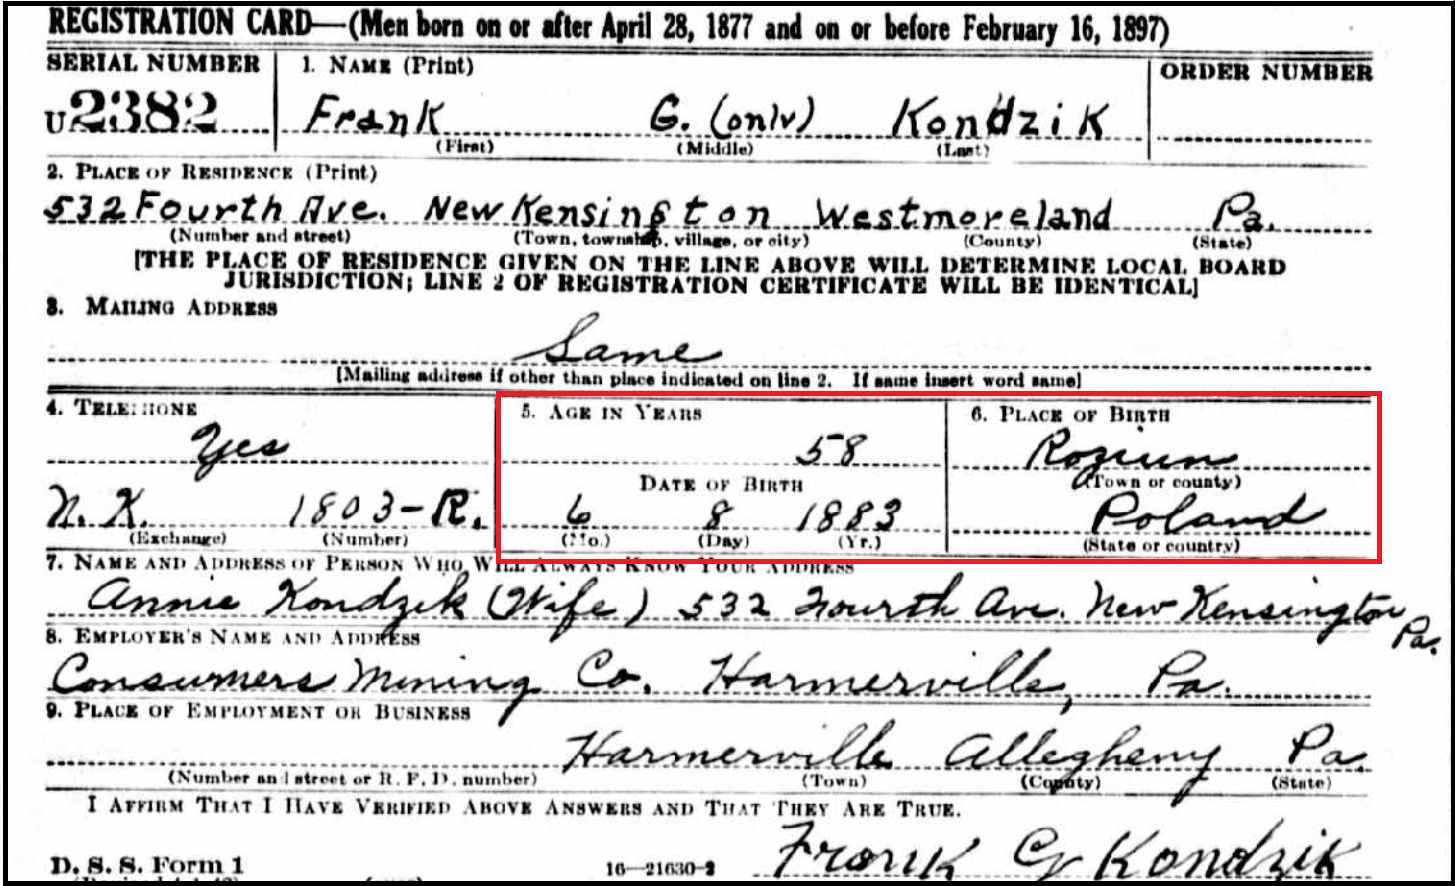 REGISTRATION CARD—(Men born on or after April 28, 1877 and on or before February 16, 1897)
SERIAL NUMBER 1. NAME (Print) ORDER NUMBER
U2382 Frank G. (only) Kondzik
(First) (Middle) (Last)
2. PLACE OF RESIDENCE (Print)
532 Fourth Ave. New Kensington Westmoreland Pa.
(Number and street) (Town, township, village, or city) (County) (State)
[THE PLACE OF RESIDENCE GIVEN ON THE LINE ABOVE WILL DETERMINE LOCAL BOARD
JURISDICTION; LINE 2 OF REGISTRATION CERTIFICATE WILL BE IDENTICAL]
3. MAILING ADDRESS
Same
[Mailing address if other than place indicated on line 2. If same insert word same]
4. TELEPHONE 5. AGE IN YEARS 6. PLACE OF BIRTH
Yes 58 Roziun
DATE OF BIRTH (Town or county)
N. K. 1803-R. 6 8 1883 Poland
(Exchange) (Number) (Mo.) (Day) (Yr.) (State or country)
7. NAME AND ADDRESS OF PERSON WHO WILL ALWAYS KNOW YOUR ADDRESS
Annie Kondzik (Wife) 532 Fourth Av. New Kensington Pa.
8. EMPLOYER'S NAME AND ADDRESS
Consumers Mining Co. Harmerville, Pa.
9. PLACE OF EMPLOYMENT OR BUSINESS
Harmerville Allegheny Pa.
(Number and street or R. F. D. number) (Town) (County) (State)
I AFFIRM THAT I HAVE VERIFIED ABOVE ANSWERS AND THAT THEY ARE TRUE.
D. S. S. Form 1 16—21630-2 Frank G Kondzik